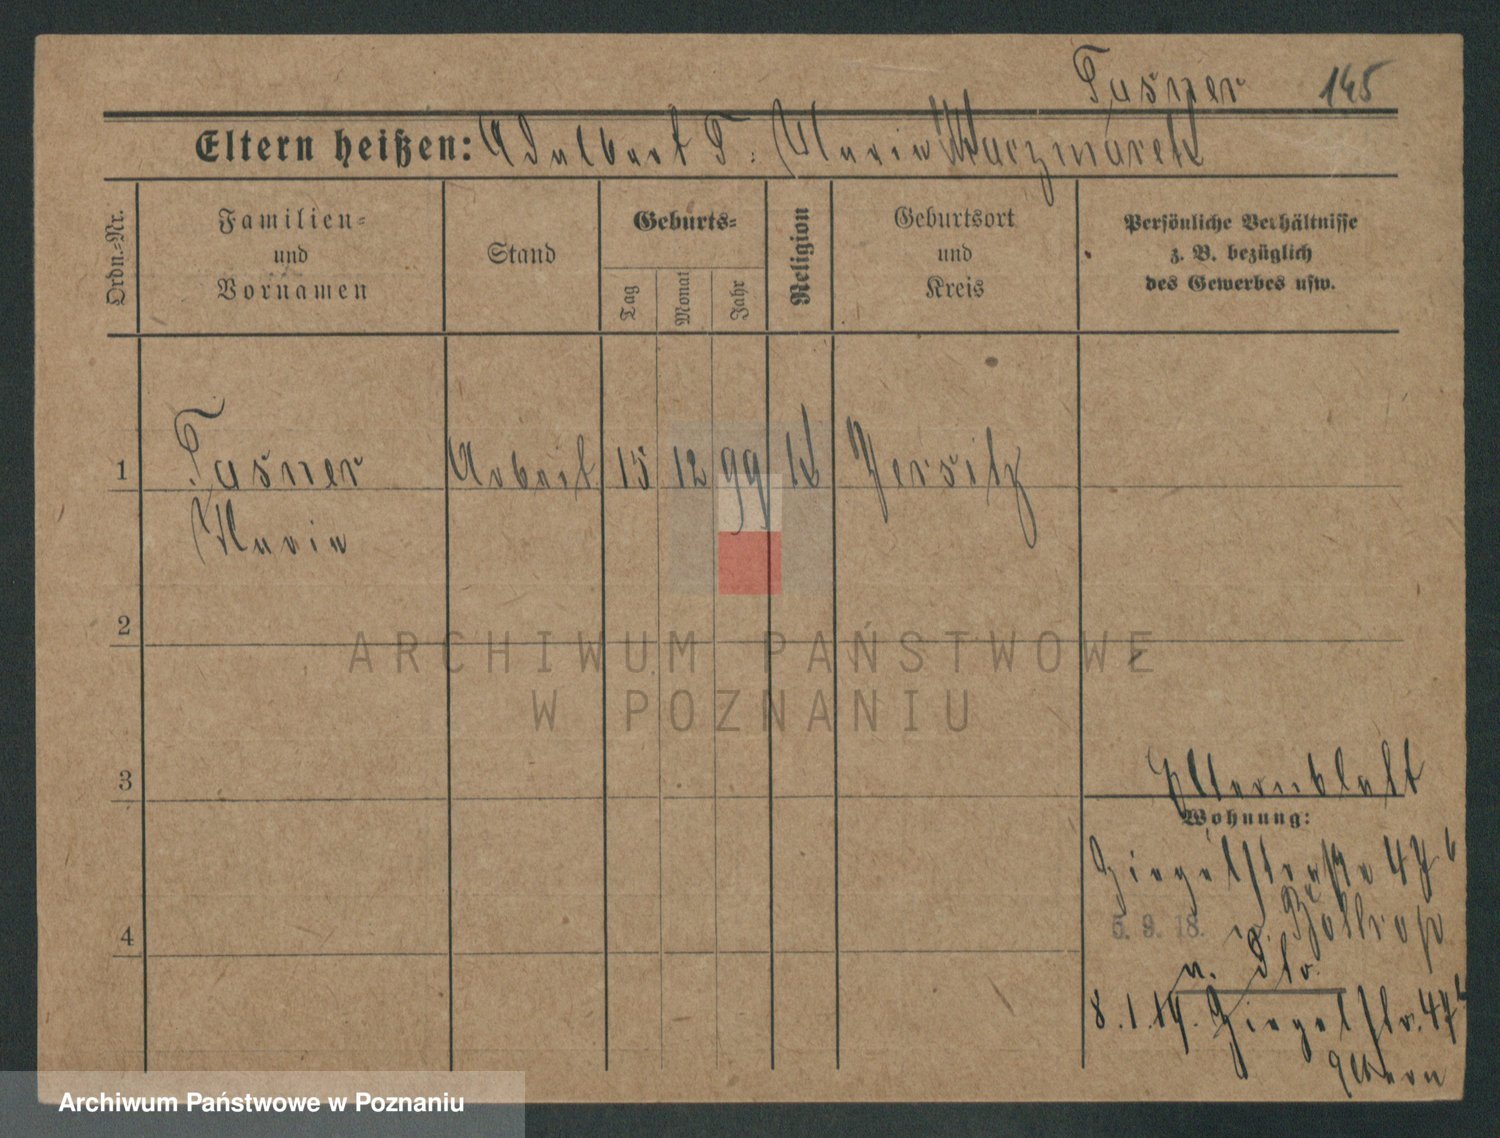 Tasner 145
Eltern heißen: Adalbert T. Maria Kaczmarek
Ordn.-Nr.
Familien-
und
Vornamen
Stand
Geburts-
Tag
Monat
Jahr
Religion
Geburtsort
und
Kreis
Persönliche Verhältnisse
z. B. bezüglich
des Gewerbes usw.
1 Tasner Arbeit 15 12 99 k Jersitz
Maria
2
ARCHIWUM PAŃSTWOWE
W POZNANIU
3
Elternblatt
Wohnung:
Ziegelstraße 47b
5. 9. 18. n. Bottrop
4
8.1.19. Ziegelstr. 47b
Eltern
Archiwum Państwowe w Poznaniu